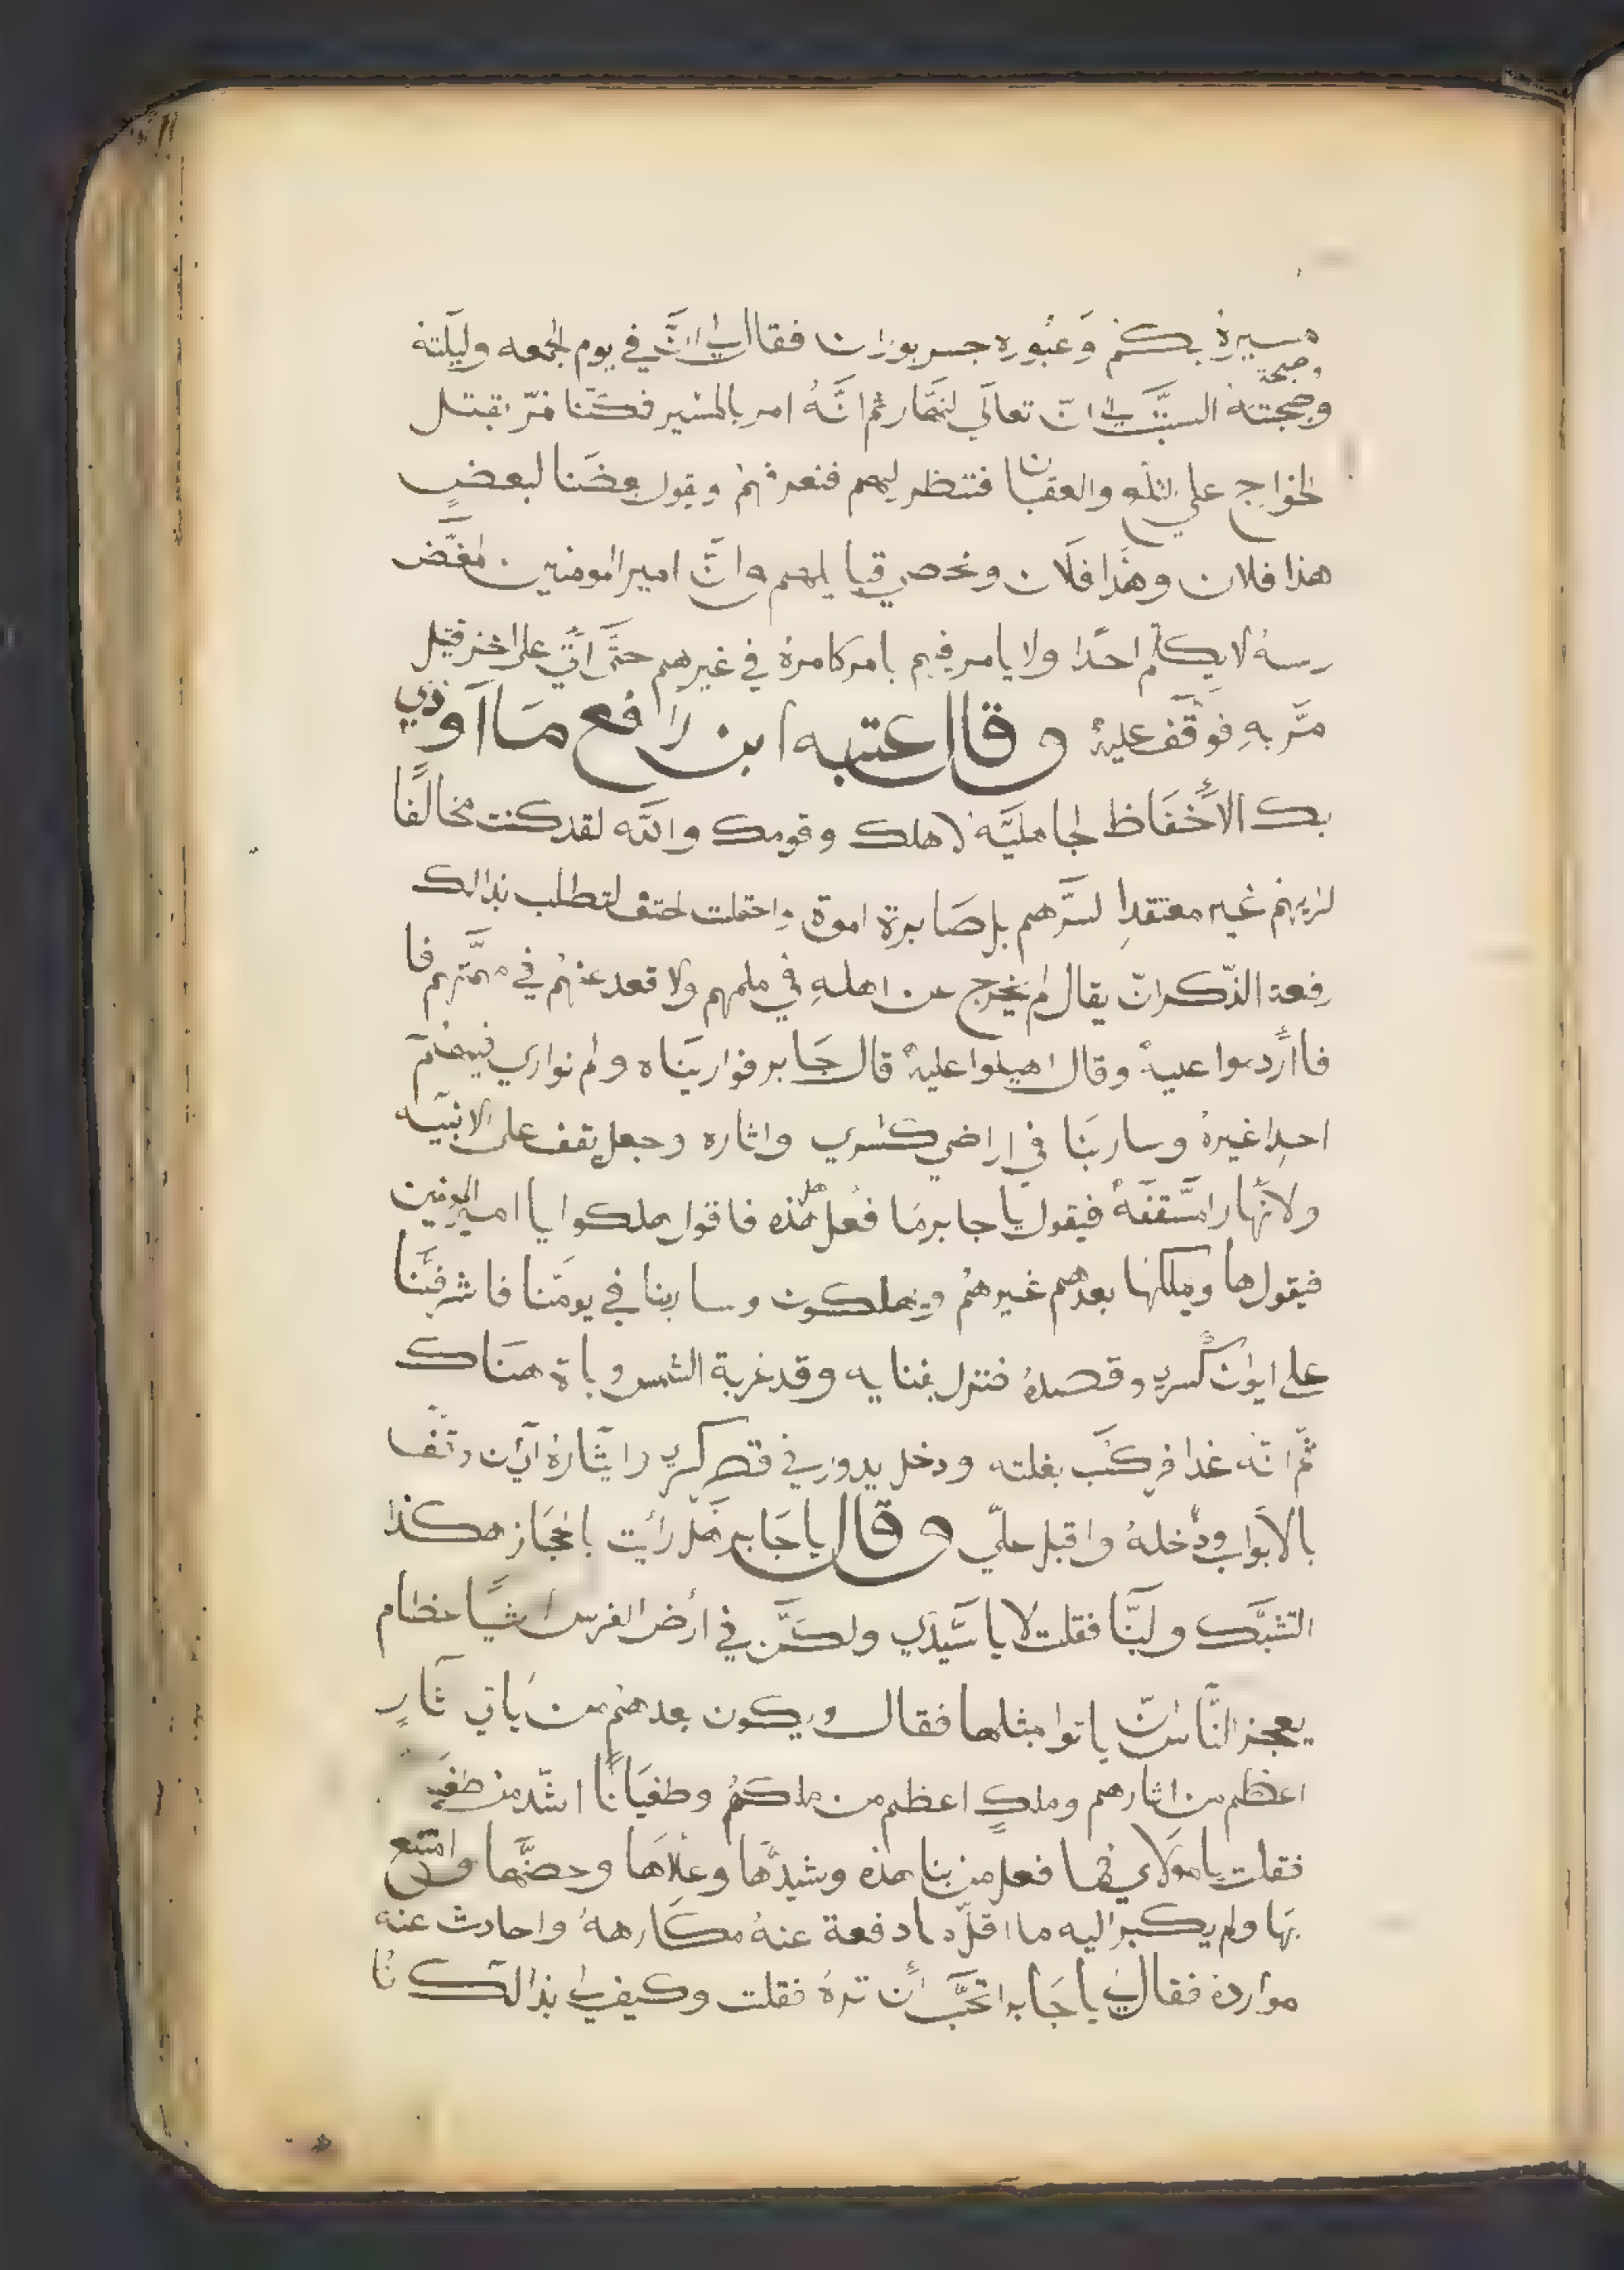 مسيرة بكم وعبوره جسر بوران فقال لي ان في يوم الجمعه وليلته
وصبحة
وصبحته السبت ان تعالى ثم انه امر بالمسير فكنا نمر بقتل
الخوارج على التله والعقبان فننظر ليهم فنعرفهم ويقول بعضنا لبعض
هذا فلان وهذا فلان ونحصي قبايلهم وان امير المومنين مغمض
رسه لا يكلم احدا ولا يامر فيهم بامر كامره في غيرهم حتى اتى على اخر قتيل
مر به فوقف عليه وقال عتبه ابن رافع ما اوذي
بك الاحفاظ الجاهليه لاهلك وقومك والله لقد كنت مخالفا
لريهم غير معتقدا لسرهم بل صابرة اموة واحتملت لحتف لتطلب بذالك
رفعة الذكر ان يقال لم يخرج عن اهله في ملمهم ولا قعد عنهم في مهمتهم فا
فااردموا عليه وقال اهيلوا عليه قال جابر فواريناه ولم نواري فيهم
احدا غيره وسار بنا في اراضي كسرى واثاره وجعل يقف على الابنيه
ولانهار امسقفه فيقول يا جابر ما فعل هذه فاقول هلكوا يا امير المومنين
فيقول ها ويملكها بعدهم غيرهم ويهلكون وسار بنا في يومنا فاشرفنا
على ايوان كسرى وقصده فنزل بفنايه وقد غربة الشمس وباة هناك
ثم انه غدا فركب بغلته ودخل يدور في قصر كسرى
بالابواب ودخله واقبل علي وقال يا جابر هل رايت بالحجاز هكذا
التشبك ولبنا فقلت لا يا سيدي ولكن في ارض الفرس اشيا عظام
يعجز الناس ان ياتوا بمثلها فقال ويكون بعدهم من ياتي ثار
اعظم من اثارهم وملك اعظم من ملكهم وطغيانا اشد من
فقلت يا مولاي فما فعل من بنا هذه وشيدها وعلاها وحصنها وامتنع
بها ولم يكبر اليه ما اقل ما دفعة عنه مكارهه واحادث عنه
موارده فقال لي يا جابر اتحب ان تره فقلت وكيف لي بذالك